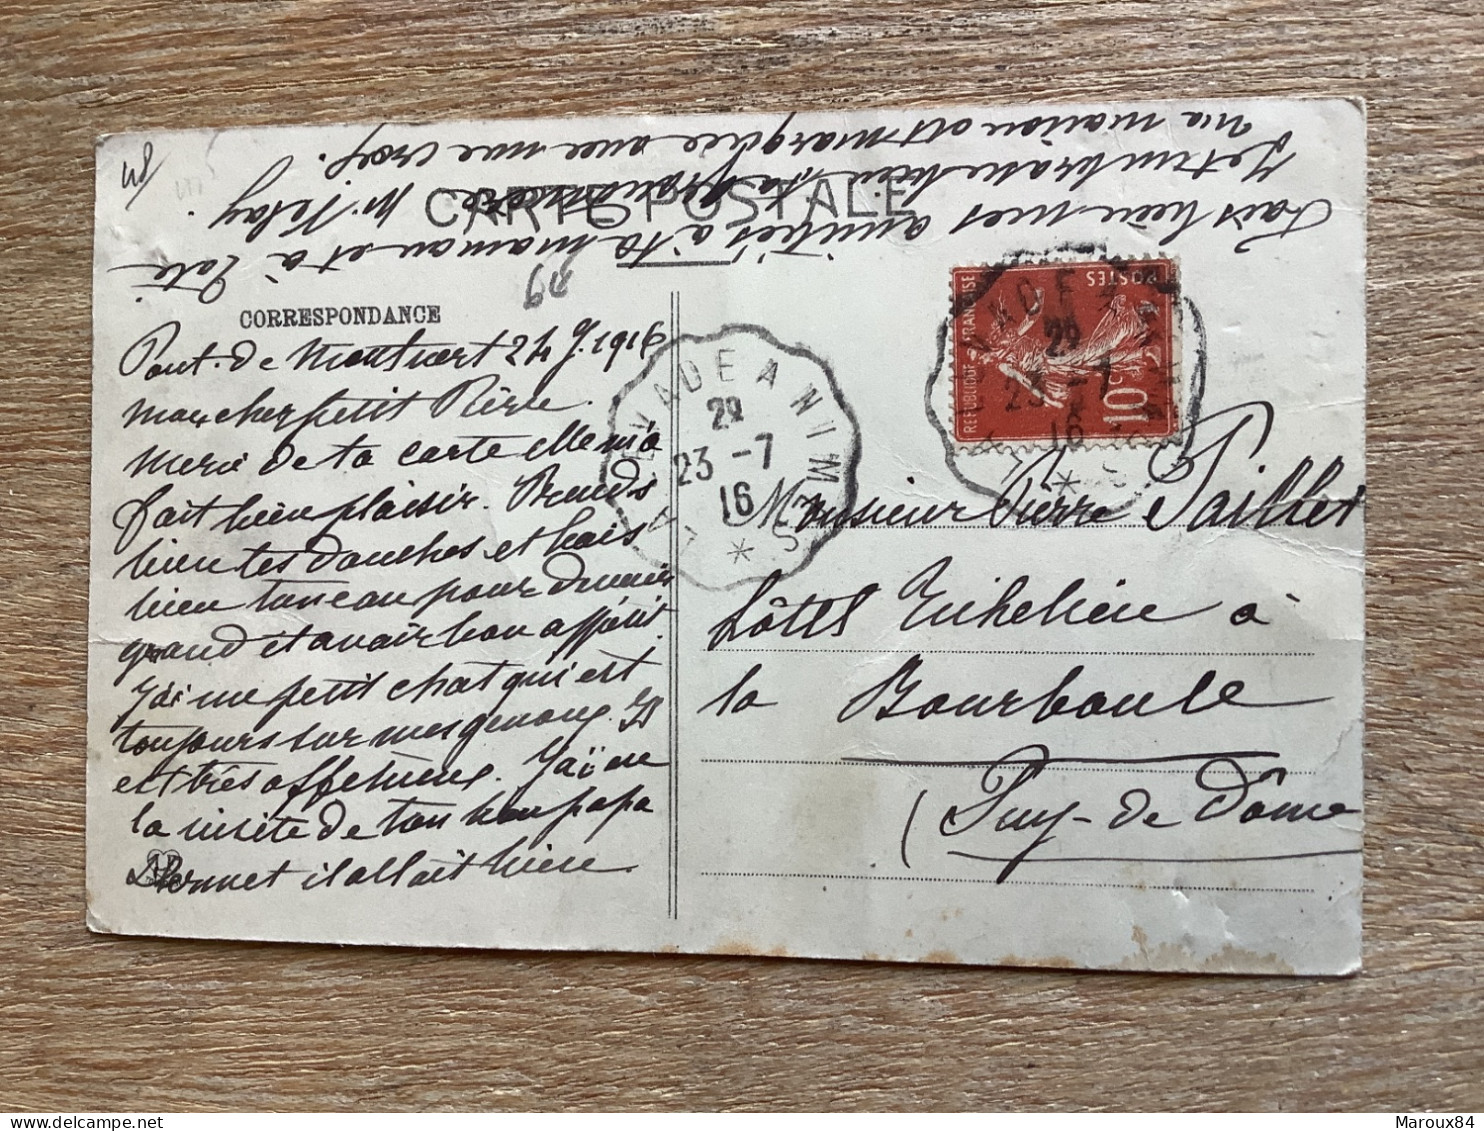 48
CARTE POSTALE
CORRESPONDANCE
Pont-de Montvert 24 J. 1916
mon cher petit Pierre.
Merci de ta carte elle m'a
fait bien plaisir. Prends
bien tes douches et bois
bien ton eau pour devenir
grand et avoir bon appétit.
J'ai un petit chat qui est
toujours sur mes genoux. Il
est très affectueux. J'ai eu
la visite de ton bon papa
il allait bien.
Fais bien mes amitiés à ta maman et à
Je t'embrasse bien ta
ma maison est marquée avec une croix.
LA LEVADE A NIMES
22
23 -7
16
REPUBLIQUE FRANCAISE
POSTES
10c
22
23 -7
16
Monsieur Pierre Paillet
hôtel Richelieu à
la Bourboule
(Puy-de Dôme
Maroux84